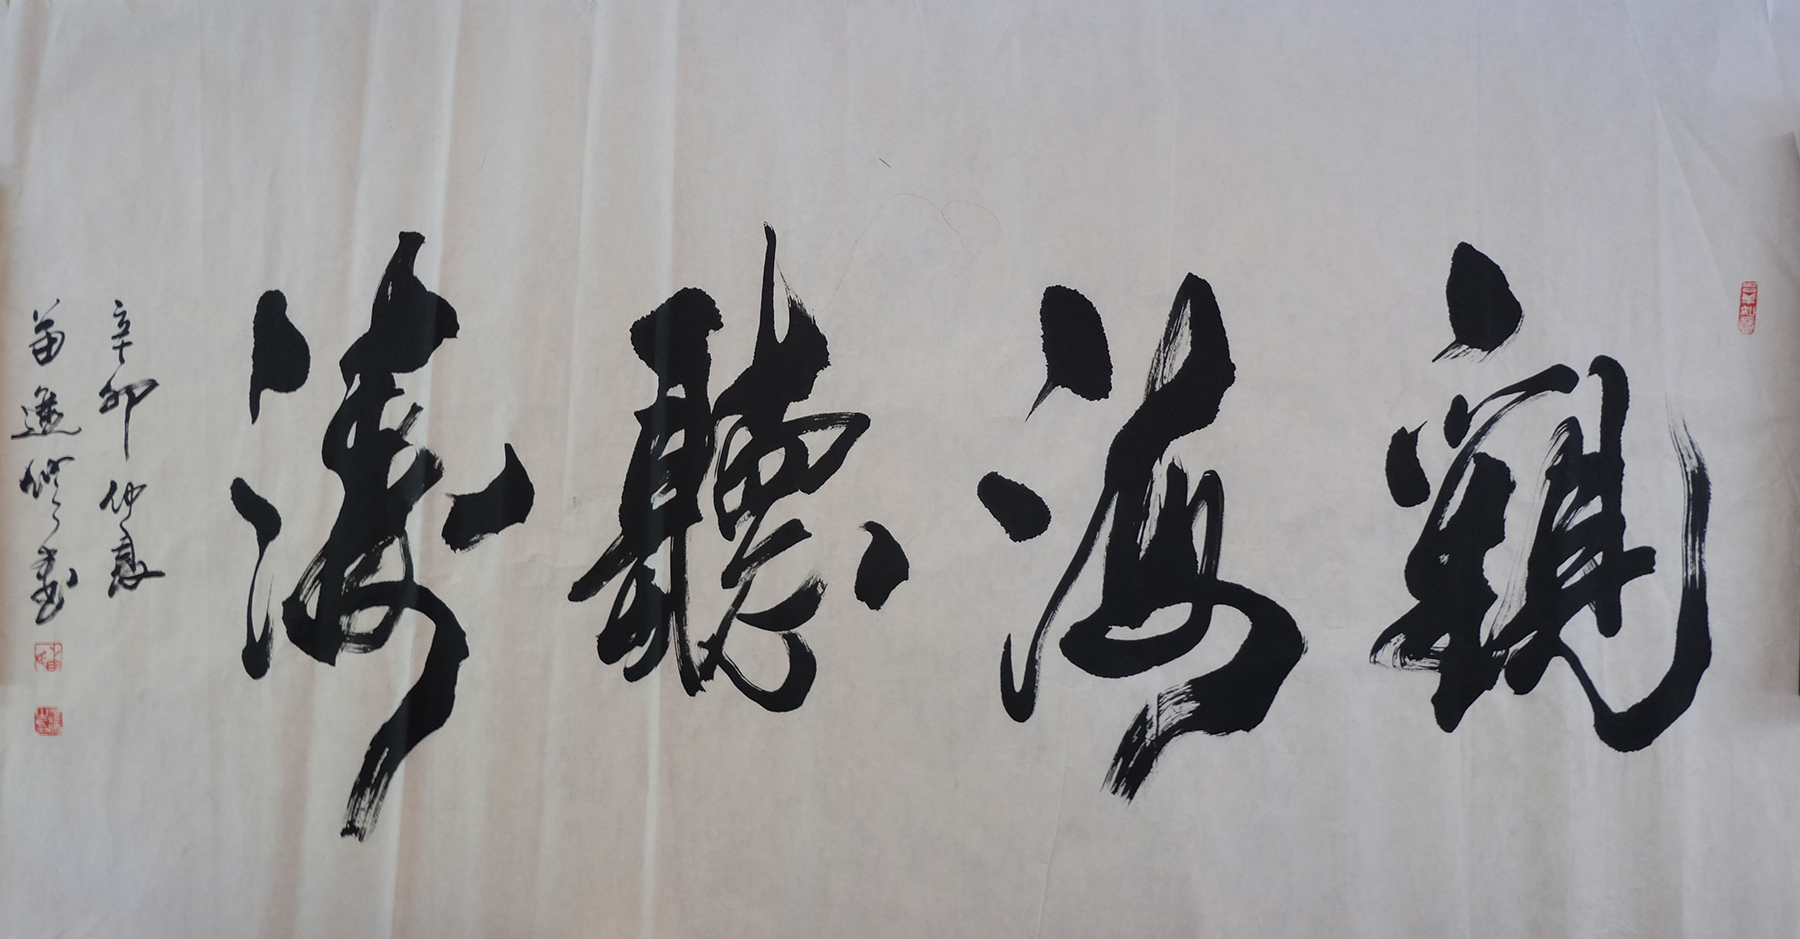 觀海聽濤
辛卯仲夏
苗進修書